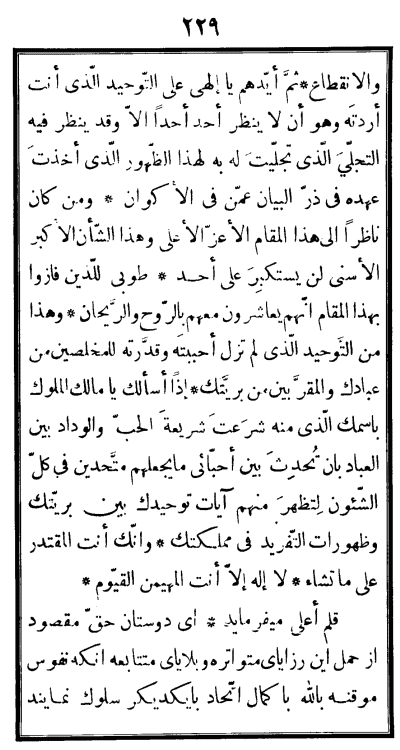 ٢٢٩
والانقطاع * ثمّ أيّدهم يا إلهى على التّوحيد الّذى أنت
أردتَه وهو أن لا ينظر أحد أحداً الاّ وقد ينظر فيه
التجلّيَ الّذى تجلّيتَ له به لهذا الظّهور الّذى أخذتَ
عهده فى ذرّ البيان عمّن فى الأكوان * ومن كان
ناظراً الى هذا المقام الأعزّ الأعلى وهذا الشّأن الأكبر
الأسنى لن يستكبرَ على أحد * طوبى للّذين فازوا
بهذا المقام انّهم يعاشرون معهم بالرّوح والرّيحان * وهذا
من التَّوحيد الّذى لم تزل أحببتَه وقدَّرته للمخلصين من
عبادك والمقرَّبين من بريّتك * اذًا أسألك يا مالك الملوك
باسمك الّذى منه شرَعتَ شريعةَ الحبّ والوداد بين
العباد بان تُحدِثَ بين أحبّائى ما يجعلهم متَّحدين فى كلّ
الشّئون لِتظهرَ منهم آيات توحيدك بين بريّتك
وظهورات التّفريد فى مملكتك * وانّك أنت المقتدر
على ما تشاء * لا إله إلاّ أنت المهيمن القيّوم *
قلم أعلى ميفرمايد * اى دوستان حقّ مقصود
از حمل اين رزاياى متواتره وبلاياى متتابعه انكه نفوس
موقنه بالله با كمال اتّحاد با يكديكر سلوك نمايند